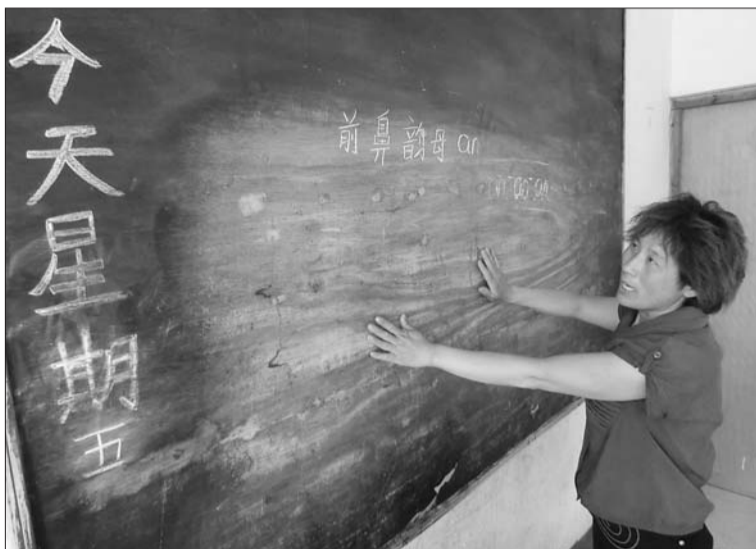 今天星期五
前鼻韵母 an